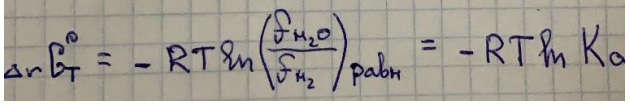 ΔrG°T = - RT ln (fH₂O / fH₂)равн = - RT ln Ka